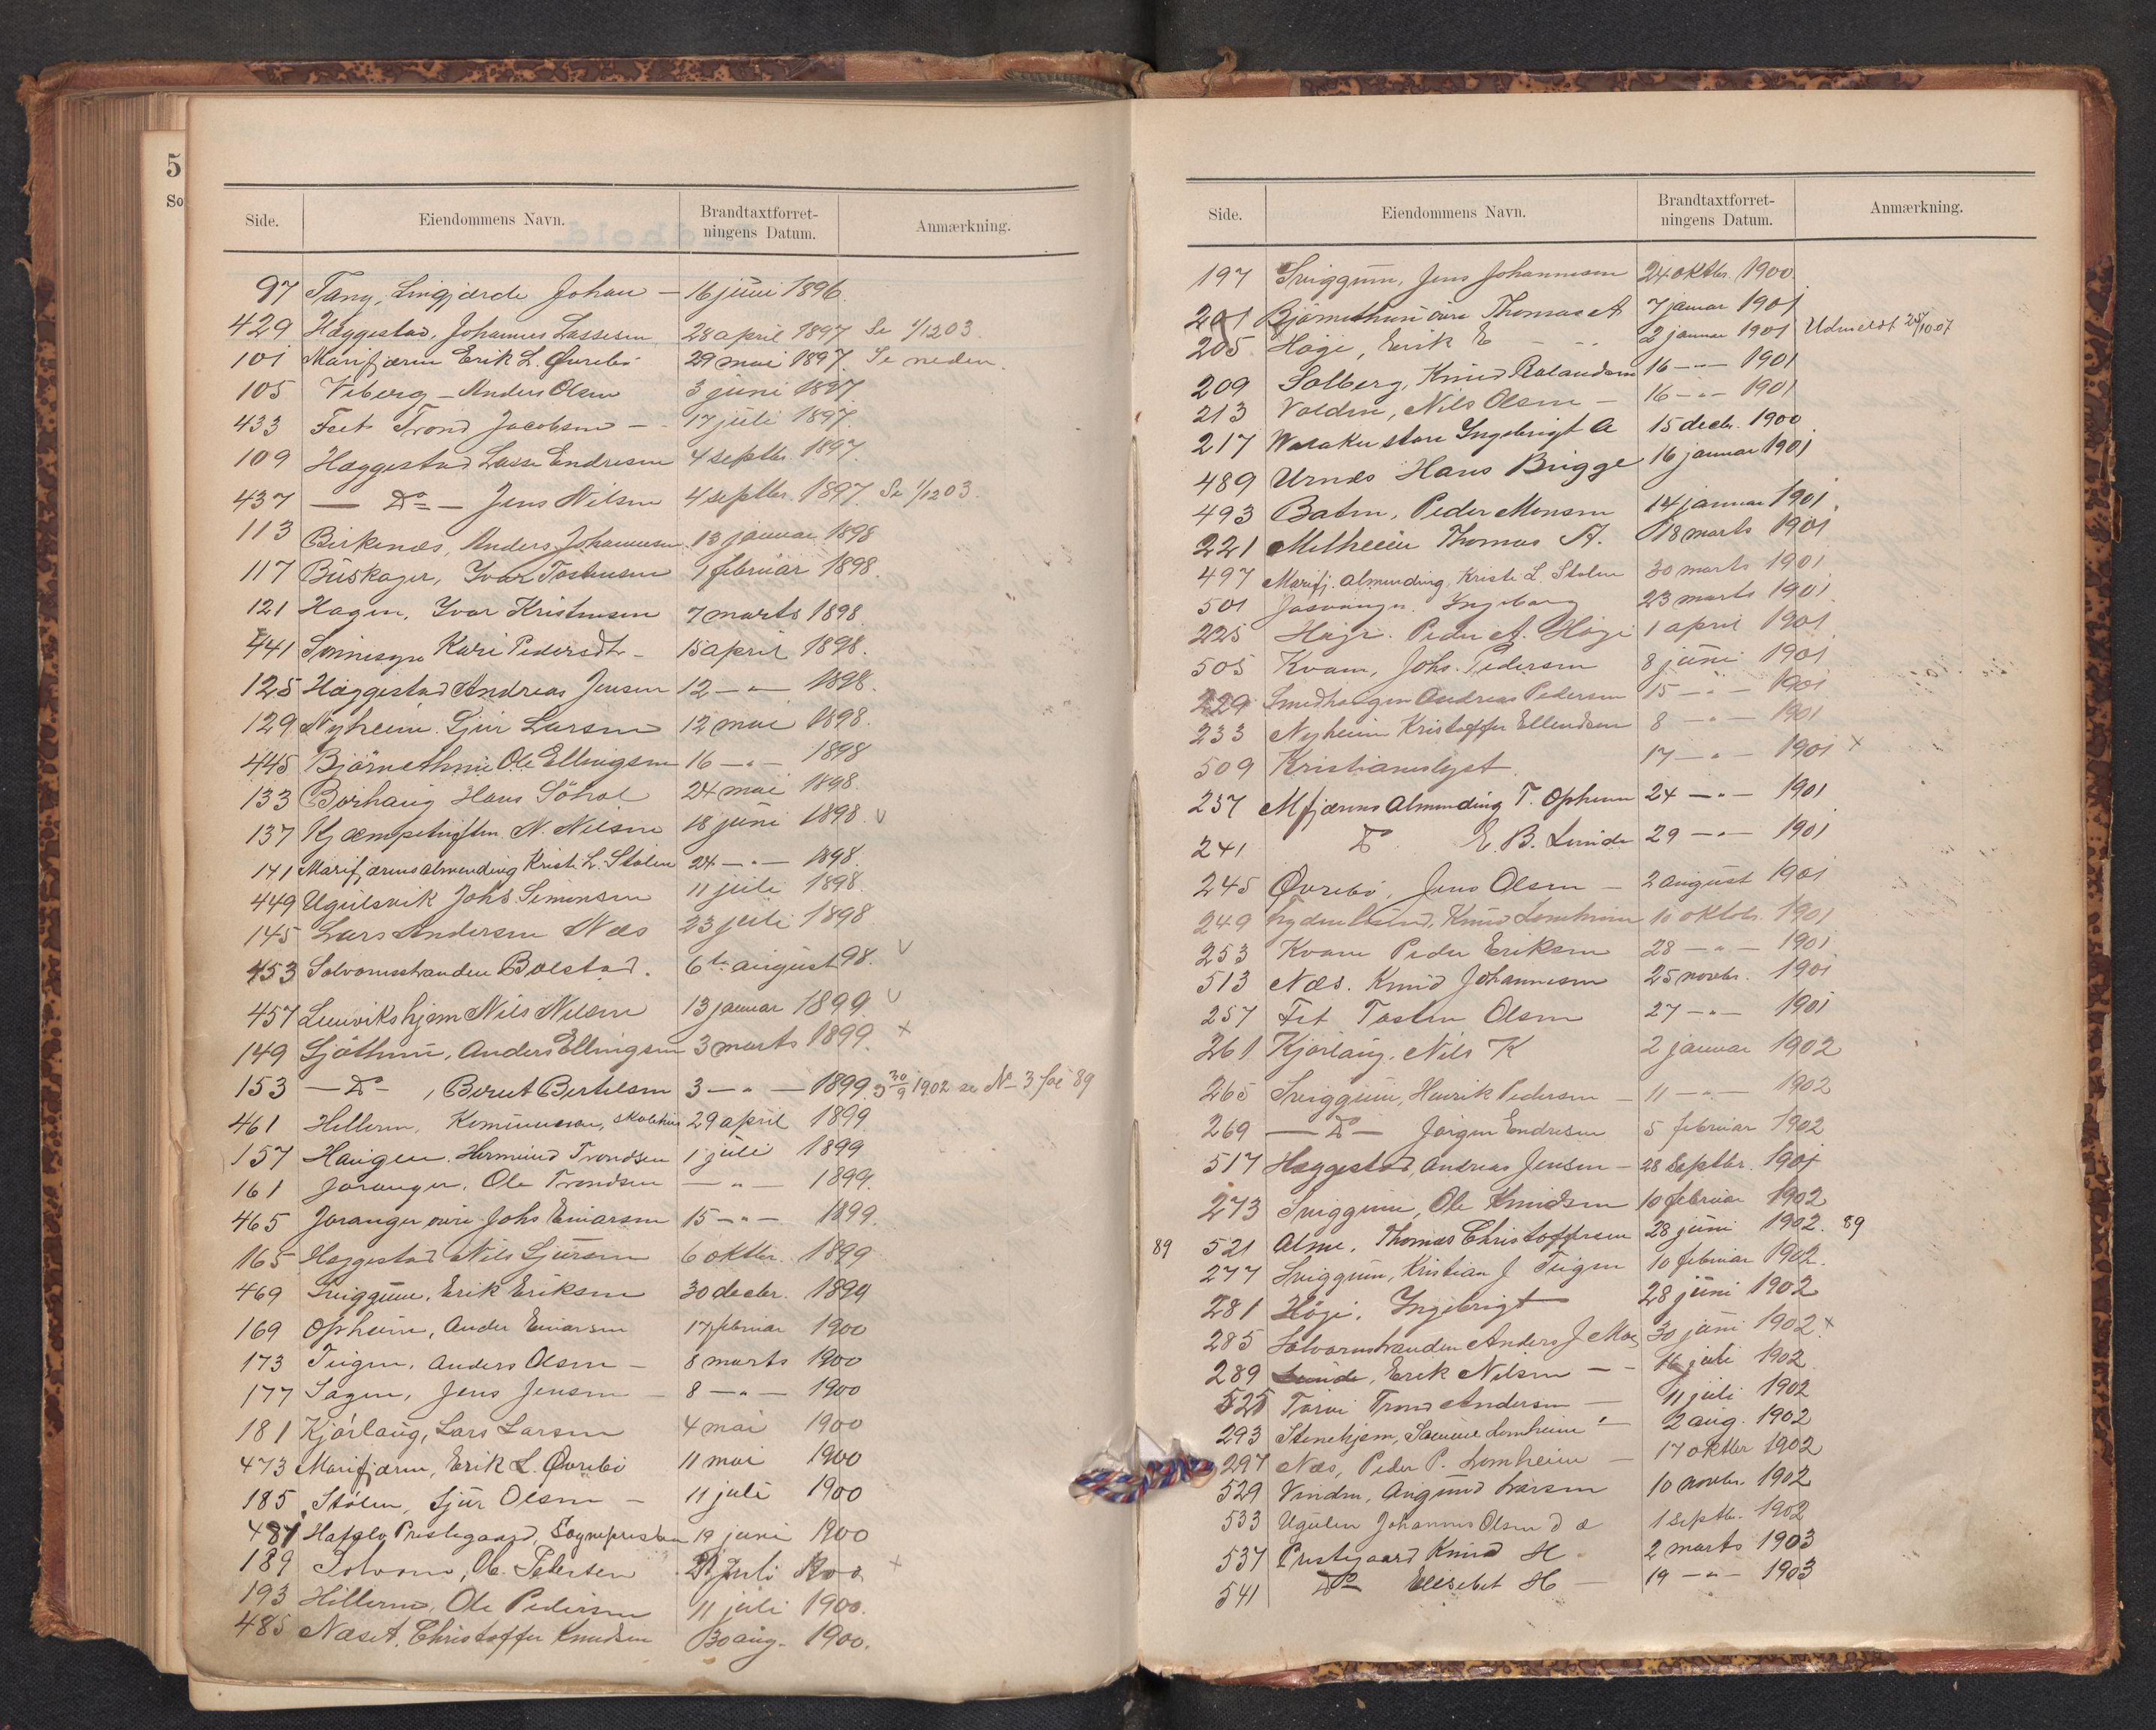 5
So
Side. Eiendommens Navn. Brandtaxtforret-
ningens Datum. Anmærkning.
97 Tang, Lingjærde Johan — 16 juni 1896.
429 Haggestad, Johannes Lassesen 28 april 1897 Se 1/12 03.
101 Marifjæren Erik L. Øvrebø 29 mai 1897. Se neden.
105 Viberg — Anders Olsen 3 juni 1897
433 Feet Trond Jacobsen — 17 juli 1897.
109 Haggestad Lasse Endresen 4 septbr. 1897.
437 — Do — Jens Nilsen 4 septbr. 1897. Se 1/12 03.
113 Birkenæs, Anders Johannesen 13 januar 1898
117 Buskager, Ivar Tostensen 1 februar 1898.
121 Hagen, Ivar Kristensen 7 marts 1898.
441 Sønnesyn Kari Pedersdtr — 15 april 1898.
125 Haggestad Andreas Jensen 12 — " — 1898.
129 Nyheim Sjur Larsen 12 mai 1898.
445 Bjørnethun Ole Ellingsen 16 — " — 1898
133 Borhaug Hans 24 mai 1898.
137 N. Nilsen 18 juni 1898. v
141 Marifjærens almending Krist. L. Stølen 24 — " — 1898.
449 Ugulsvik Johs. Simonsen 11 juli 1898.
145 Lars Andersen Næs 23 juli 1898
453 Solvornsstranden Bolstad. 6te august 98. v
457 Leirvikshjem Nils Nilsen 13 januar 1899. v
149 Sjøthun, Anders Ellingsen 3 marts 1899. x
153 — Do — , Berut Bertelsen 3 — " — 1899. 30/9 1902 se No 3 fol 89
461 Hillern, Kommunen, skolehus 29 april 1899
157 Haugen. Hermund Trondsen 1 juli 1899
161 Joranger, Ole Trondsen — " — 1899.
465 Joranger øvre Johs Einarsen 15 — " — 1899.
165 Haggestad Nils Sjursen 6 oktbr. 1899
469 Sviggum, Erik Eriksen 30 decbr. 1899
169 Opheim, Anders Einarsen 17 februar 1900
173 Teigen, Anders Olsen — 8 marts 1900
177 Sagen, Jens Jensen — 8 — " — 1900
181 Kjørlaug, Lars Larsen 4 mai 1900
473 Marifjæren, Erik L. Øvrebø 11 mai 1900
185 Stølen, Sjur Olsen — 11 juli 1900
481 Hafslo Prestegaard, Sognepresten 19 juni 1900
189 Solvorn, Ole Petersen 21 Juli 1900 x
193 Hillern, Ole Pedersen 11 juli 1900.
485 Næset, Christoffer Knudsen 30 aug. 1900.
Side. Eiendommens Navn. Brandtaxtforret-
ningens Datum. Anmærkning.
197 Sviggum, Jens Johannesen 24 oktbr. 1900.
201 Bjørnethun øvre Thomas A 7 januar 1901
205 Høge, Erik E — 2 januar 1901 Udmeldt 25/10 07
209 Solberg, Knud Rolandsen 16 — " — 1901
213 Volden, Nils Olsen — 16 — " — 1901
217 store Ingebrigt A 15 decbr. 1900
489 Urnes Hans Brigge 16 januar 1901
493 Baten, Peder Monsen 14 januar 1901.
221 Melheim Thomas A. 18 marts 1901
497 Marifj. almending, Kriste L. Stølen 30 marts 1901
501 Ingeborg 23 marts 1901
225 Høgi. Peder A. Høgi 1 april 1901
505 Kvam, Johs. Pedersen 8 juni 1901
229 Smedhaugen Andreas Pedersen 15 — " — 1901
233 Nyheim Kristoffer Ellendsen 8 — " — 1901
509 Kristianslyst 17 — " — 1901 x
237 Mfjærens Almending T. Opheim 24 — " — 1901
241 Do E. B. Lunde 29 — " — 1901
245 Øvrebø, Jens Olsen — 2 august 1901
249 Knud Lomheim 10 oktob. 1901
253 Kvam Peder Eriksen 28 — " — 1901
513 Næs. Knud Johannesen 25 novbr. 1901
257 Fet Tosten Olsen 27 — " — 1901
261 Kjørlaug, Nils K 2 januar 1902
265 Sviggum, Henrik Pedersen — 11 — " — 1902
269 — Do — Jørgen Endresen 5 februar 1902
517 Haggestad, Andreas Jensen — 28 Septbr. 1901
273 Sviggum, Ole Knudsen 10 februar 1902
89 521 Alme, Thomas Christoffersen 28 juni 1902. 89
277 Sviggum, Kristian J Teigen 10 februar 1902.
281 Høgi, Ingebrigt 28 juni 1902
285 Solvornstranden Anders J Moe 30 juni 1902. x
289 Lunde, Erik Nilsen — 16 juli 1902
525 Tarvi Trond Andersen — 11 juli 1902
293 Stenehjem, Samuel Lomheim — 2 aug. 1902
297 Næs, Peder P. Lomheim — 17 oktbr 1902
529 Vinden, Augund Larsen 10 novbr. 1902
533 Ugulen Johannes Olsen d æ 1 septbr. 1902
537 Prestegaard Knud H 2 marts 1903
541 Do Elisebet H — 19 — " — 1903